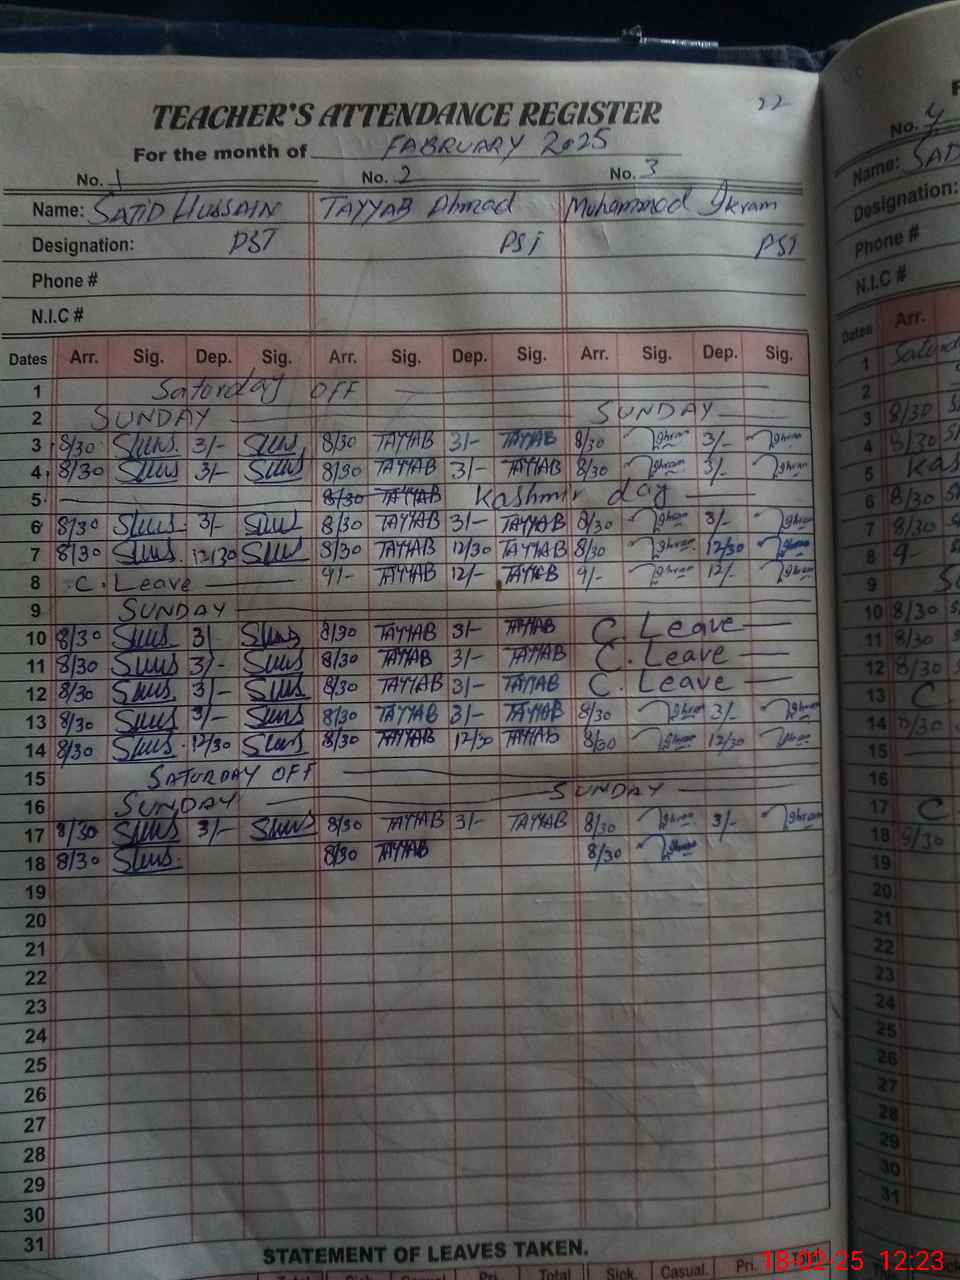 22
TEACHER'S ATTENDANCE REGISTER
For the month of FABRUARY 2025
No. 1 No. 2 No. 3
Name: SAJID HUSSAIN TAYYAB Ahmad Muhammad Ikram
Designation: PST PST PST
Phone #
N.I.C #
Dates Arr. Sig. Dep. Sig. Arr. Sig. Dep. Sig. Arr. Sig. Dep. Sig.
1 Saturday OFF
2 SUNDAY SUNDAY
3 8/30 3/- 8/30 TAYYAB 3/- TAYYAB 8/30 Ikram 3/- Ikram
4 8/30 3/- 8/30 TAYYAB 3/- TAYYAB 8/30 Ikram 3/- Ikram
5 8/30 TAYYAB Kashmir day
6 8/30 3/- 8/30 TAYYAB 3/- TAYYAB 8/30 Ikram 3/- Ikram
7 8/30 12/30 8/30 TAYYAB 12/30 TAYYAB 8/30 Ikram 12/30 Ikram
8 C. Leave 9/- TAYYAB 12/- TAYYAB 9/- Ikram 12/- Ikram
9 SUNDAY
10 8/30 3/ 8/30 TAYYAB 3/- TAYYAB C. Leave
11 8/30 3/- 8/30 TAYYAB 3/- TAYYAB C. Leave
12 8/30 3/- 8/30 TAYYAB 3/- TAYYAB C. Leave
13 8/30 3/- 8/30 TAYYAB 3/- TAYYAB 8/30 Ikram 3/- Ikram
14 8/30 12/30 8/30 TAYYAB 12/30 TAYYAB 8/30 Ikram 12/30 Ikram
15 SATURDAY OFF
16 SUNDAY SUNDAY
17 8/30 3/- 8/30 TAYYAB 3/- TAYYAB 8/30 Ikram 3/- Ikram
18 8/30 8/30 TAYYAB 8/30 Ikram
19
20
21
22
23
24
25
26
27
28
29
30
31
STATEMENT OF LEAVES TAKEN.
Total Sick. Casual. Pri. Total Sick. Casual. Pri.
No. 4
Name: SAD
Designation:
Phone #
N.I.C #
Dates Arr.
1
2
3 8/30
4 8/30
5 Kas
6 8/30
7 8/30
8 9-
9
10 8/30
11 8/30
12 8/30
13 C
14 8/30
15
16
17 C
18
19
20
21
22
23
24
25
26
27
28
29
30
31
18-02-25 12:23